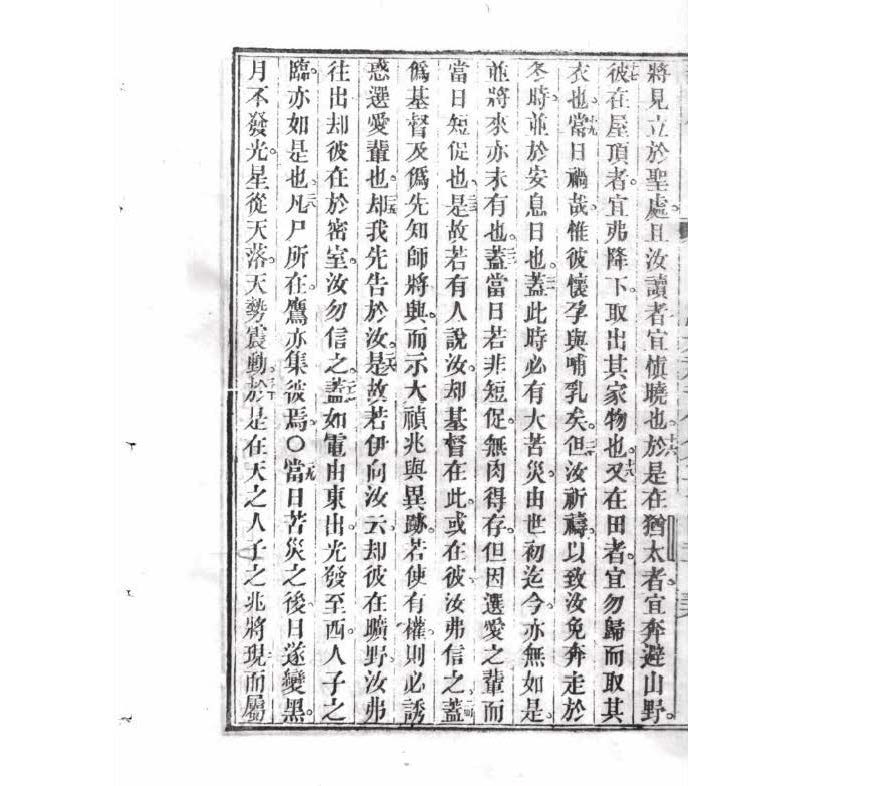 將見立於聖處且汝讀者宜慎曉也。十六於是在猶太者。宜奔避山野。
十七彼在屋頂者。宜弗降下。取出其家物也。十八又在田者。宜勿歸而取其
衣也。十九當日禍哉。惟彼懷孕與哺乳矣。二十但汝祈禱。以致汝免奔走於
冬時。並於安息日也。二一蓋此時必有大苦災。由世初迄今。亦無如是。
並將來亦未有也。二二蓋當日若非短促。無肉得存。但因選愛之輩而
當日短促也。二三是故若有人說汝。却基督在此。或在彼。汝弗信之。二四蓋
偽基督及偽先知師將興。而示大禎兆與異跡。若使有權。則必誘
惑選愛輩也。二五却我先告於汝。二六是故若伊向汝云。却彼在曠野。汝弗
往出。却彼在於密室。汝勿信之。二七蓋如電由東出。光發至西。人子之
臨。亦如是也。二八凡尸所在。鷹亦集彼焉。○二九當日苦災之後。日遂變黑。
月不發光。星從天落。天勢震動。三十於是在天之人子之兆將現。而屬